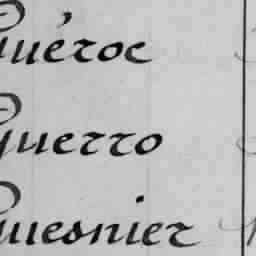 Guéroc
Guerro
Guesnier